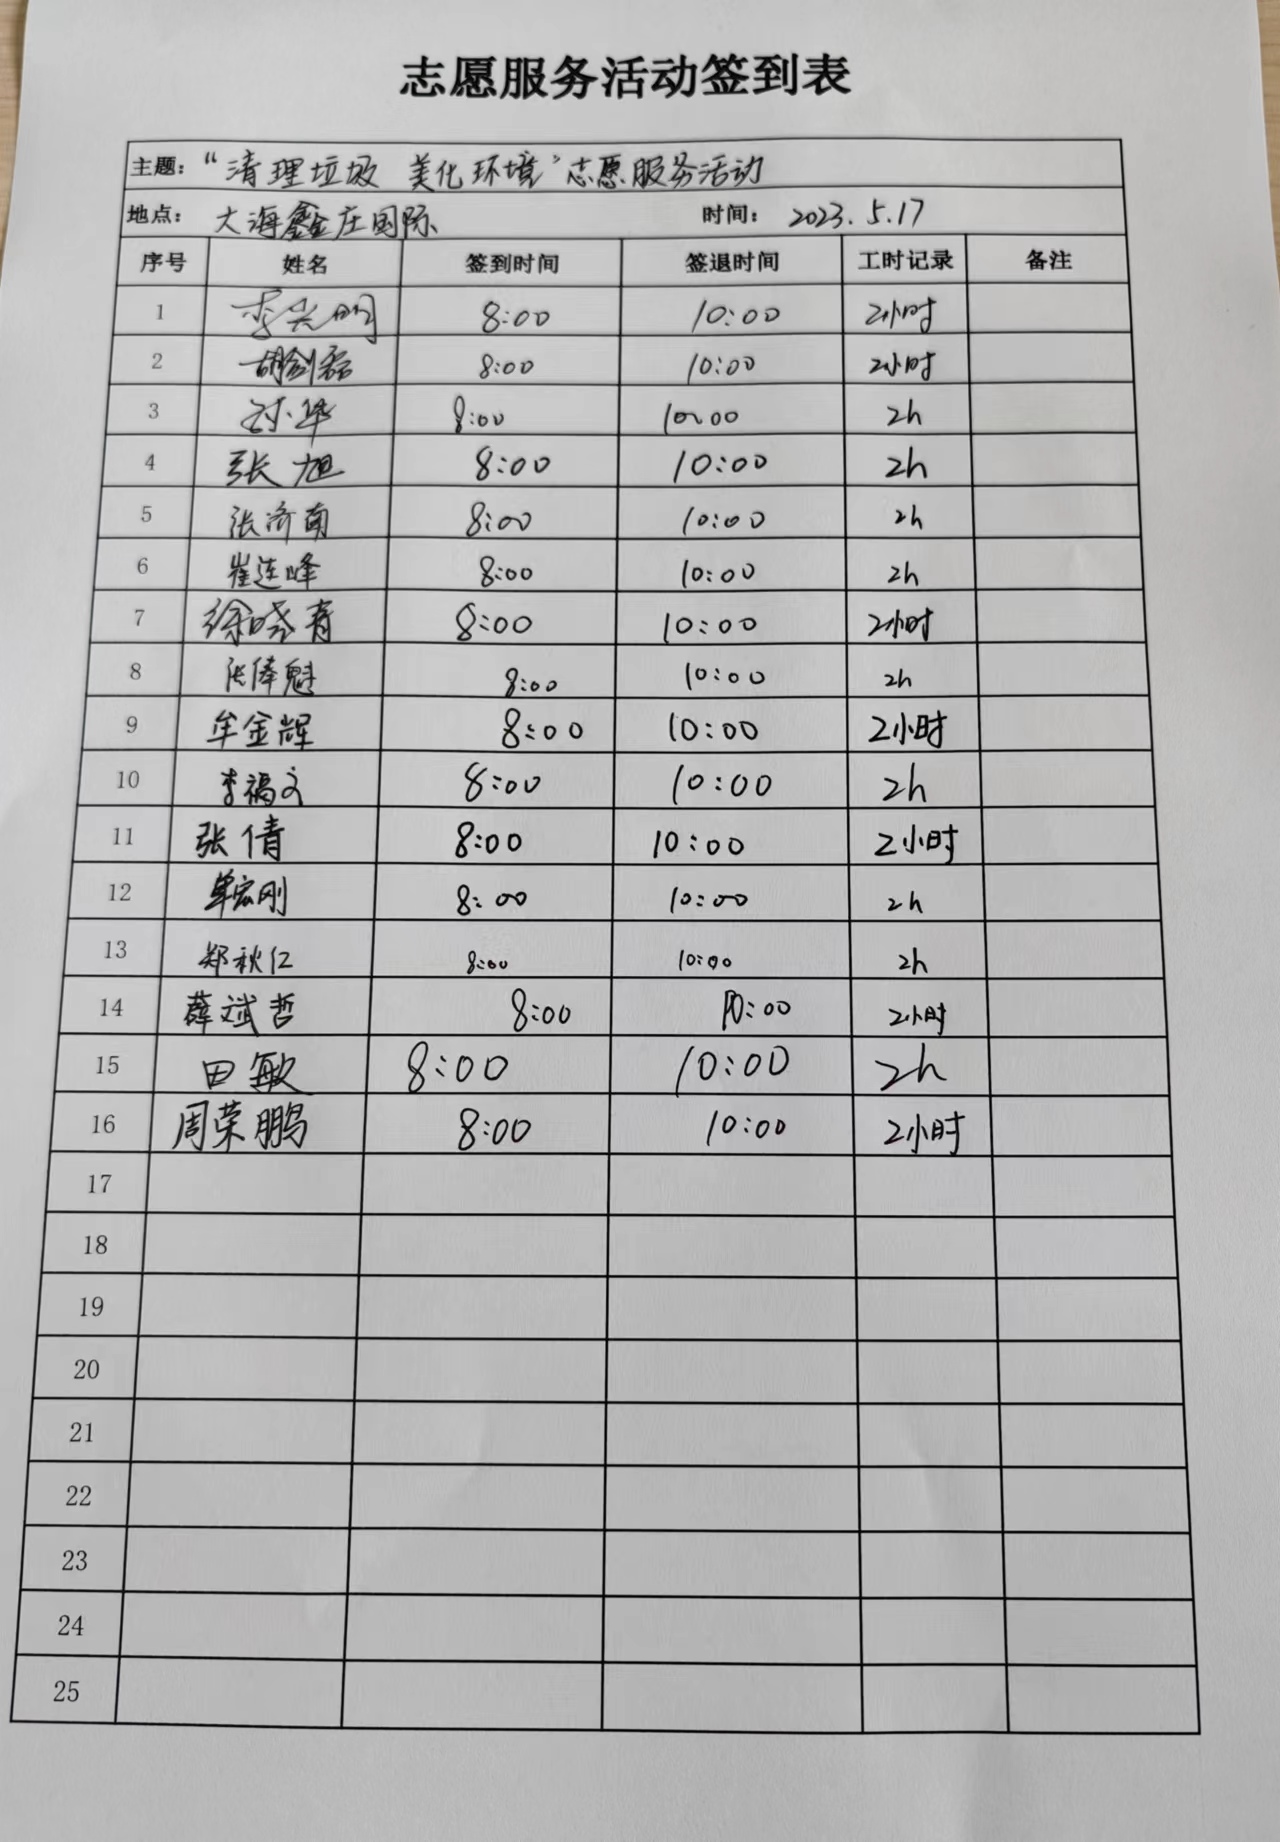 志愿服务活动签到表
主题：“清理垃圾 美化环境”志愿服务活动
地点：大海鑫庄国际 时间：2023.5.17
序号 姓名 签到时间 签退时间 工时记录 备注
1 李兴明 8:00 10:00 2小时
2 胡剑磊 8:00 10:00 2小时
3 8:00 10:00 2h
4 张旭 8:00 10:00 2h
5 张济南 8:00 10:00 2h
6 崔连峰 8:00 10:00 2h
7 徐晓青 8:00 10:00 2小时
8 张俸魁 8:00 10:00 2h
9 牟金辉 8:00 10:00 2小时
10 李福文 8:00 10:00 2h
11 张倩 8:00 10:00 2小时
12 单宏刚 8:00 10:00 2h
13 郑秋仁 8:00 10:00 2h
14 薛斌哲 8:00 10:00 2小时
15 田敏 8:00 10:00 2h
16 周荣鹏 8:00 10:00 2小时
17
18
19
20
21
22
23
24
25